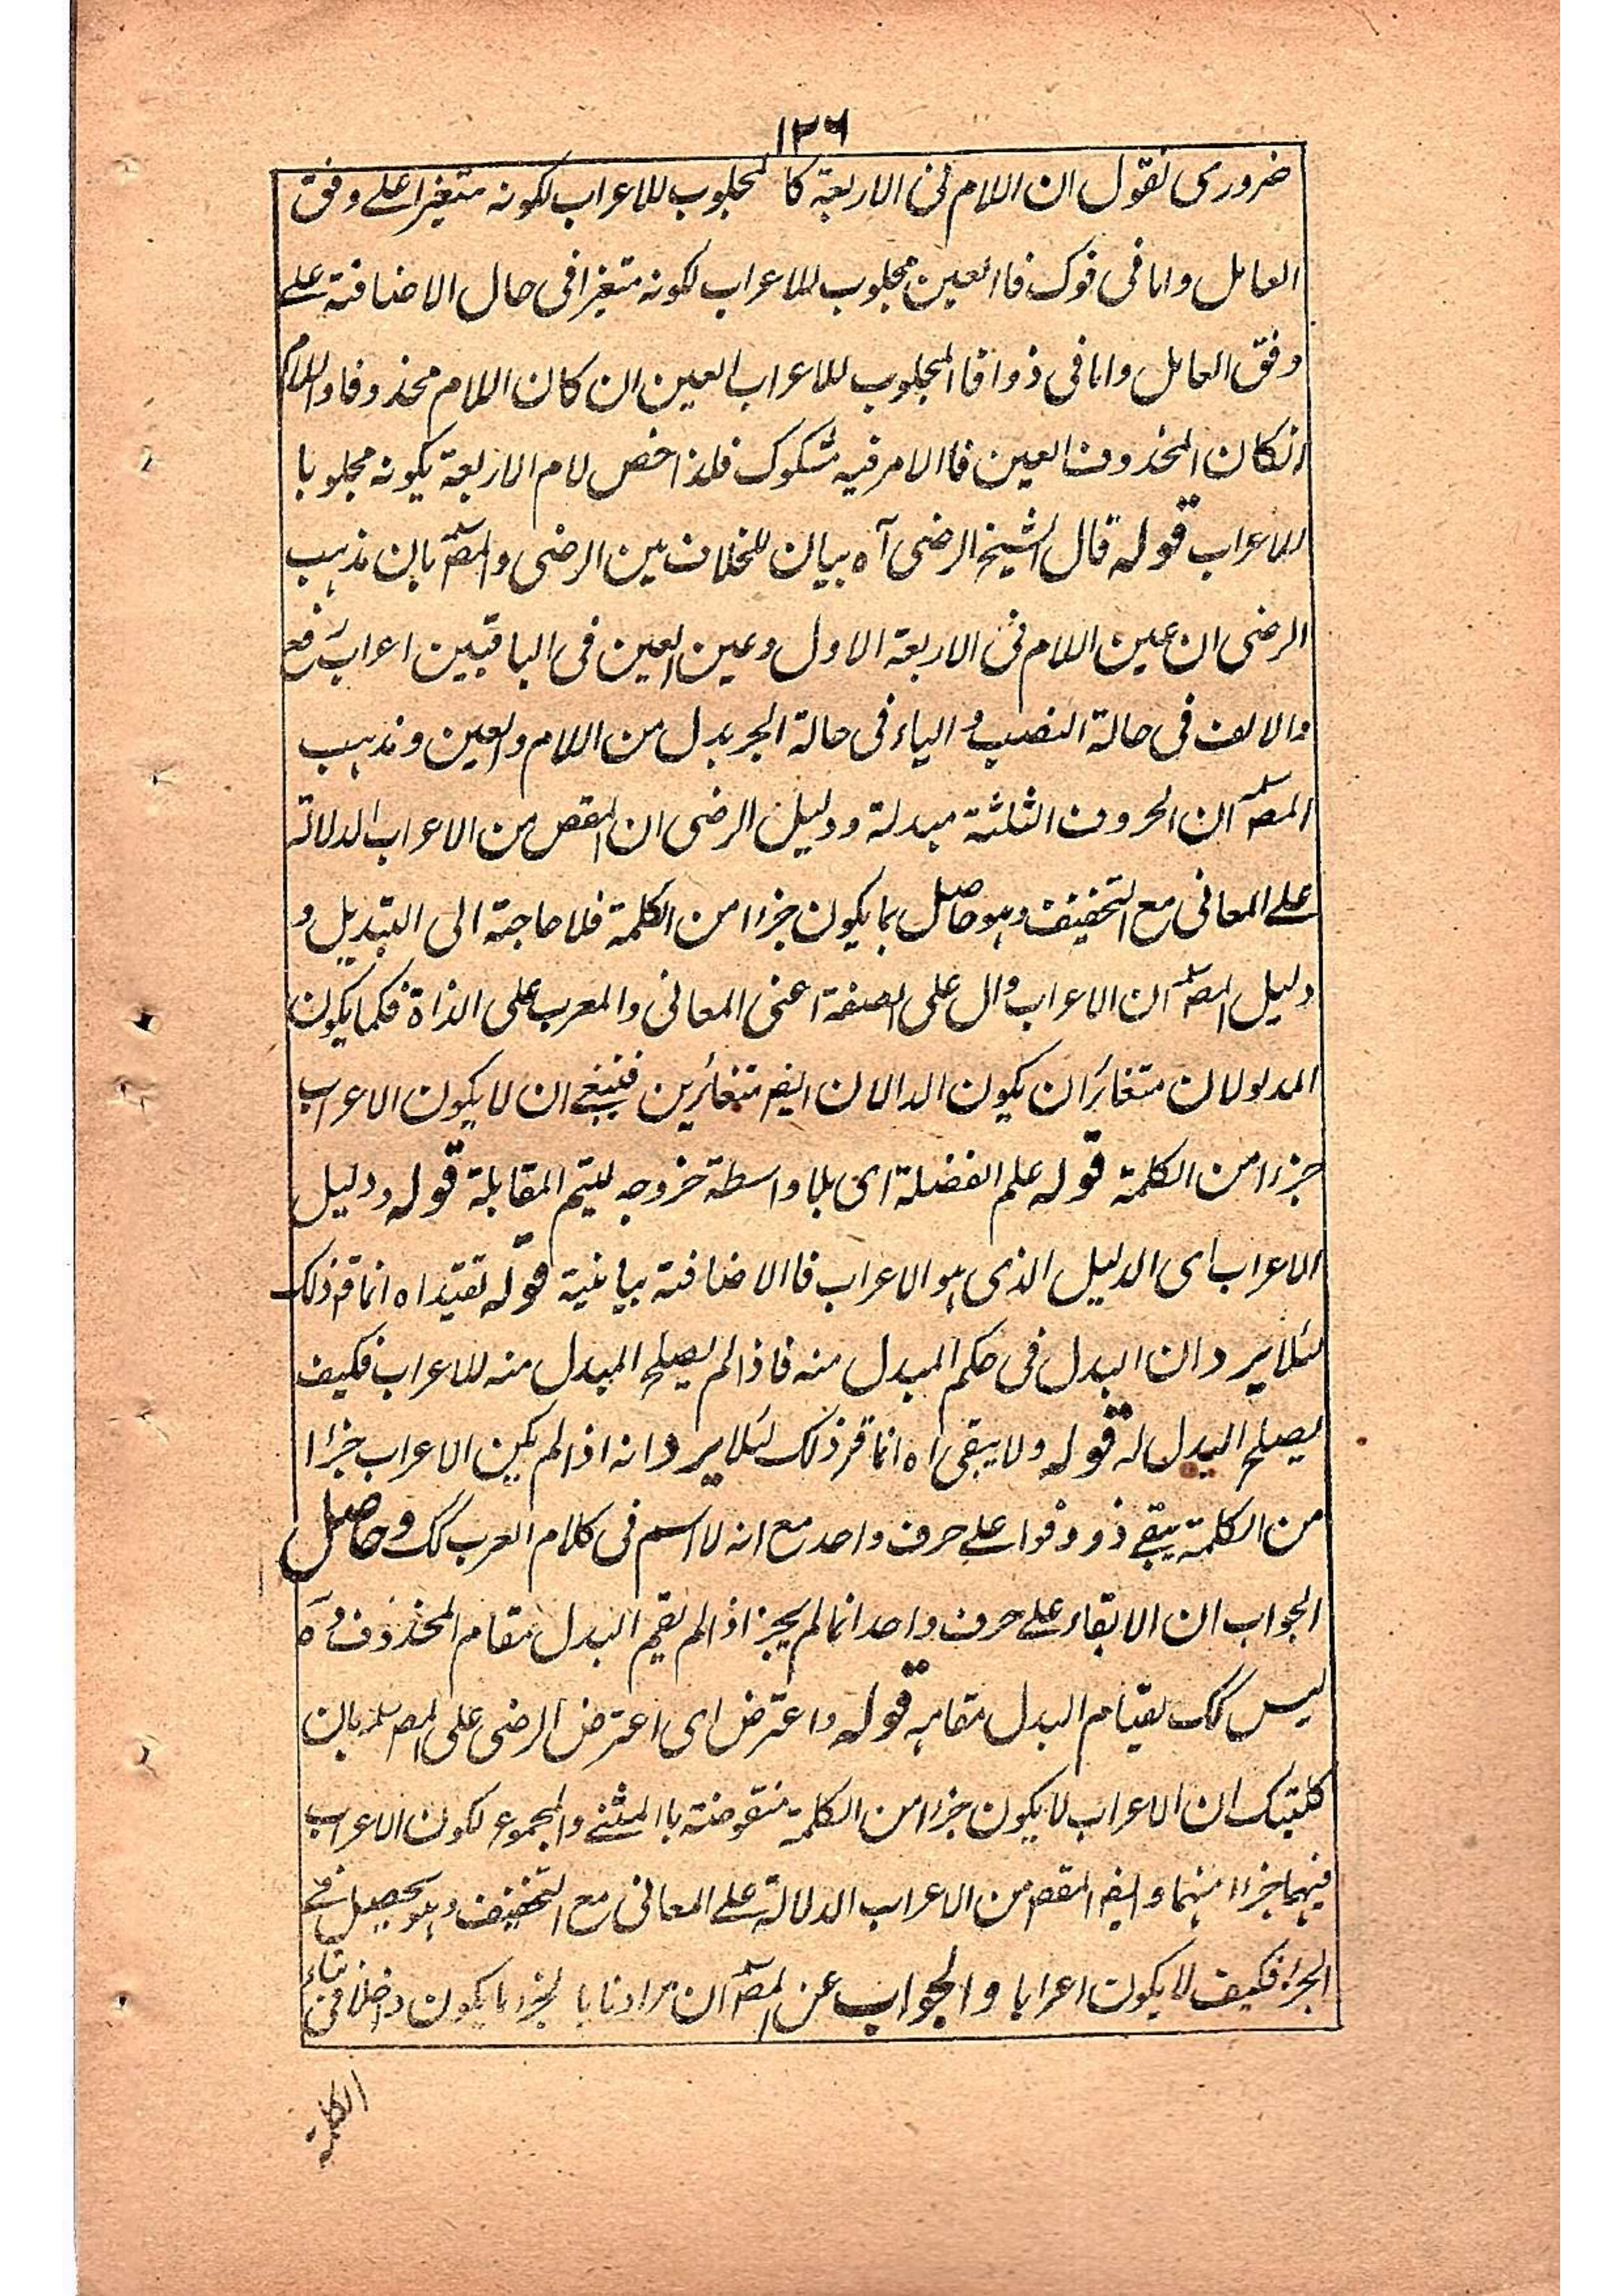 ١٢٦
ضرورى نقول ان اللام فى الاربعة كا لمجلوب للاعراب لكونه متغيرا على وفق
العامل واما فى فوك فا العين مجلوب للاعراب لكونه متغيرا فى حال الاضافة على
وفق العامل واما فى ذو افا المجلوب للاعراب العين ان كان اللام محذوفا واللام
انكان المحذوف العين فا الامر فيه مشكوك فلذا خص لام الاربعة بكونه مجلوبا
للاعراب قوله قال الشيخ الرضى آه بيان للخلاف بين الرضى والمصؒ بان مذهب
الرضى ان عين اللام فى الاربعة الاول وعين العين فى الباقيين اعراب رفع
والالف فى حالة النصب و الياء فى حالة الجر بدل من اللام والعين ومذهب
المصؒ ان الحروف الثلثة مبدلة ودليل الرضى ان المقص من الاعراب الدلالة
على المعانى مع التخفيف وهو حاصل بما يكون جزءا من الكلمة فلا حاجة الى التبديل و
دليل المصؒ ان الاعراب دال على الصفة اعنى المعانى والمعرب على الذاة فكما يكون
المدلولان متغائران يكون الدالان ايضا متغائرين فينبغى ان لا يكون الاعراب
جزءا من الكلمة قوله علم الفضلة اى بلا واسطة خروجه ليتم المقابلة قوله ودليل
الاعراب اى الدليل الذى هو الاعراب فا الاضافة بيانية قوله تقيدا ه انما قر ذلك
لئلا يرد ان البدل فى حكم المبدل منه فاذا لم يصلح المبدل منه للاعراب فكيف
يصلح البدل له قوله ولا يبقى اه انما قر ذلك لئلا يرد انه اذا لم يكن الاعراب جزءا
من الكلمة يبقى ذو وفوا على حرف واحد مع انه لا اسم فى كلام العرب كك وحاصل
الجواب ان الابقاء على حرف واحد انما لم يجز اذا لم يقم البدل مقام المحذوف و
ليس كك لقيام البدل مقامه قوله واعترض اى اعترض الرضى على المصؒ بان
كليتك ان الاعراب لا يكون جزءا من الكلمة منقوضة باالمثنى والمجموع لكون الاعراب
فيهما جزءا منهما وايضا المقص من الاعراب الدلالة على المعانى مع التخفيف وهو يحصيل فى
الجزء فكيف لا يكون اعرابا والجواب عن المصؒ ان مرادنا با لجزء ما يكون داخلا فى بناء
الكلمة